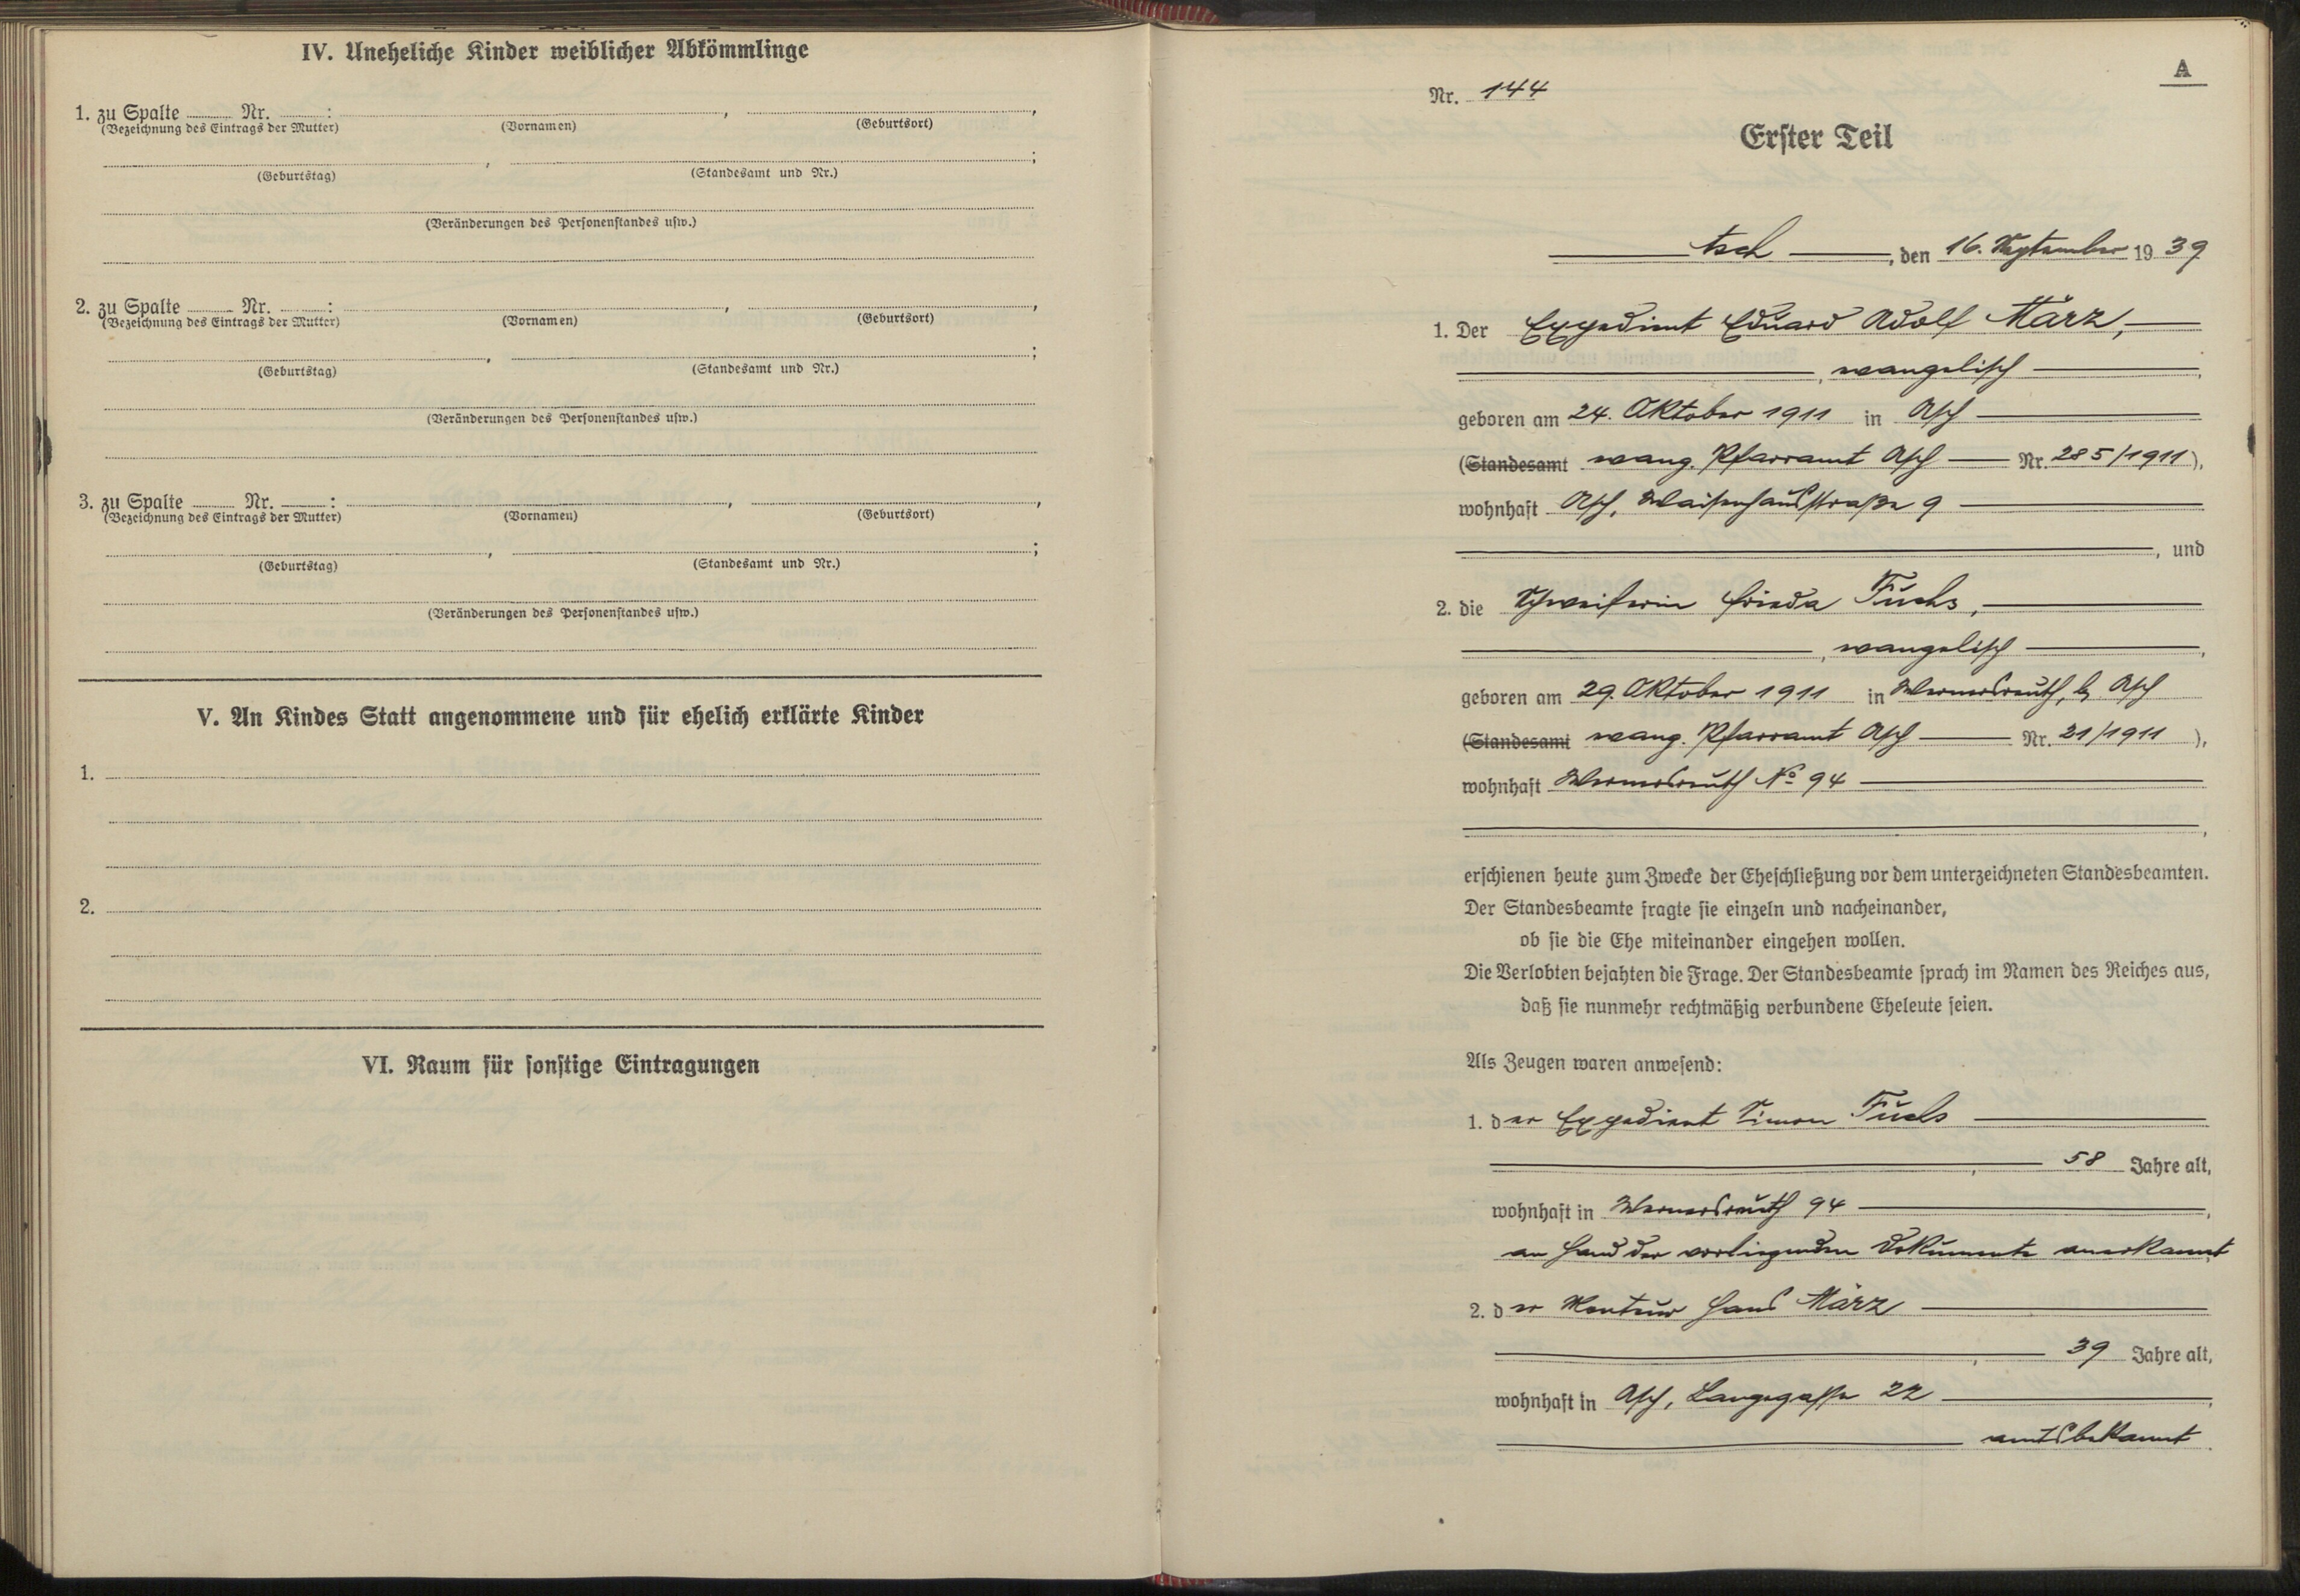 IV. Uneheliche Kinder weiblicher Abkömmlinge
1. zu Spalte Nr. : , ,
(Bezeichnung des Eintrags der Mutter) (Vornamen) (Geburtsort)
, ;
(Geburtstag) (Standesamt und Nr.)
(Veränderungen des Personenstandes usw.)
2. zu Spalte Nr. : , ,
(Bezeichnung des Eintrags der Mutter) (Vornamen) (Geburtsort)
, ;
(Geburtstag) (Standesamt und Nr.)
(Veränderungen des Personenstandes usw.)
3. zu Spalte Nr. : , ,
(Bezeichnung des Eintrags der Mutter) (Vornamen) (Geburtsort)
, ;
(Geburtstag) (Standesamt und Nr.)
(Veränderungen des Personenstandes usw.)
V. An Kindes Statt angenommene und für ehelich erklärte Kinder
1.
2.
VI. Raum für sonstige Eintragungen
A
Nr. 144
Erster Teil
Asch, den 16. September 1939
1. Der Expedient Eduard Adolf März,
, evangelisch ,
geboren am 24. Oktober 1911 in Asch
(Standesamt evang. Pfarramt Asch Nr. 285/1911),
wohnhaft Asch, Waisenhausstraße 9
, und
2. die Schweiferin Frieda Fuchs,
, evangelisch ,
geboren am 29. Oktober 1911 in Wernersreuth, b. Asch
(Standesamt evang. Pfarramt Asch Nr. 21/1911 ),
wohnhaft Wernersreuth No 94
,
erschienen heute zum Zwecke der Eheschließung vor dem unterzeichneten Standesbeamten.
Der Standesbeamte fragte sie einzeln und nacheinander,
ob sie die Ehe miteinander eingehen wollen.
Die Verlobten bejahten die Frage. Der Standesbeamte sprach im Namen des Reiches aus,
daß sie nunmehr rechtmäßig verbundene Eheleute seien.
Als Zeugen waren anwesend:
1. der Expedient Simon Fuchs
, 58 Jahre alt,
wohnhaft in Wernersreuth 94 ,
an Hand der vorliegenden Dokumente anerkannt
2. der Monteur Hans März
, 39 Jahre alt,
wohnhaft in Asch, Langegasse 22 ,
amtsbekannt.